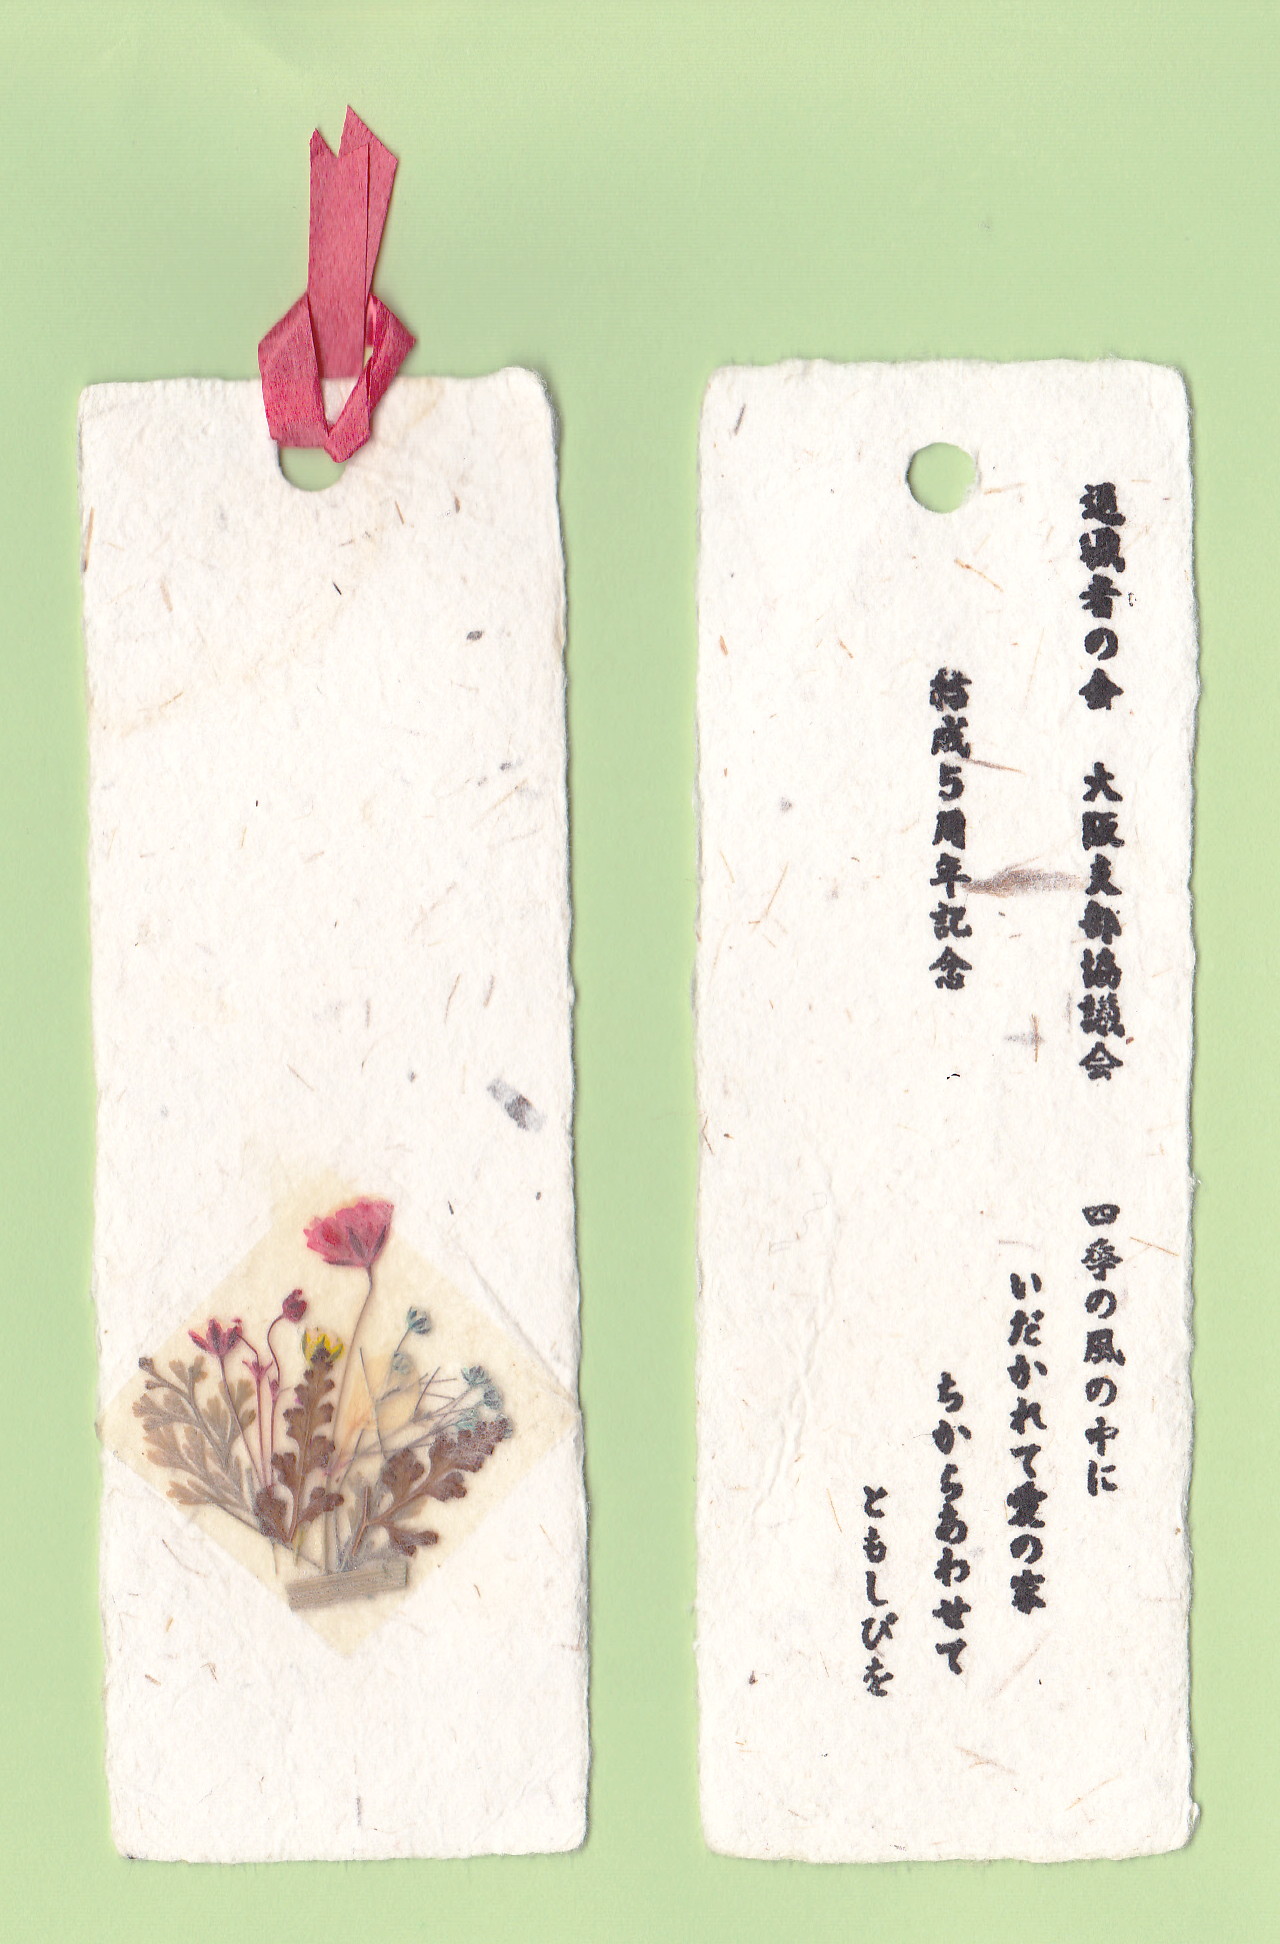 退職者の会　大阪支部協議会
結成5周年記念
四季の風の中に
いだかれて愛の家
ちからあわせて
ともしびを